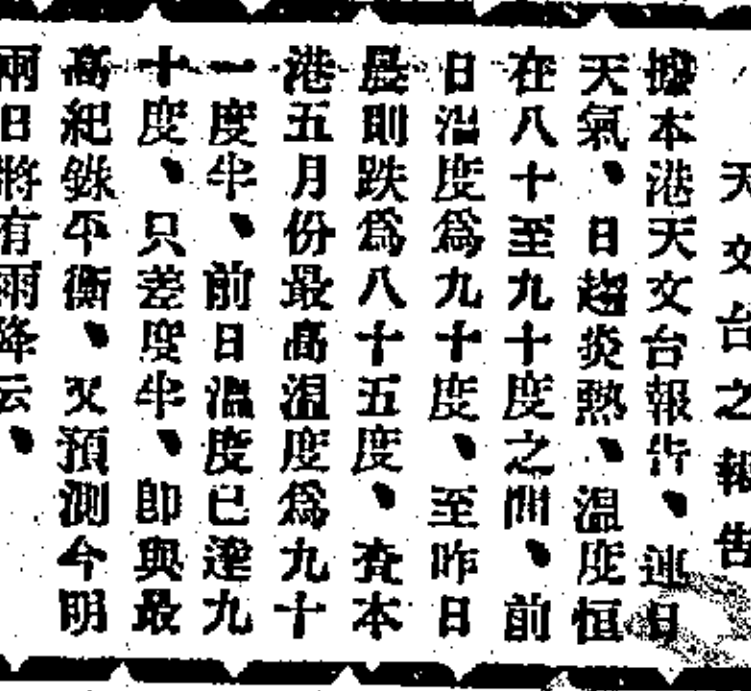 天文台之報告
據本港天文台報告、連日
天氣、日趨炎熱、溫度恒
在八十至九十度之間、前
日溫度為九十度、至昨日
晨則跌為八十五度、查本
港五月份最高溫度為九十
一度半、前日溫度已達九
十度、只差度半、即與最
高紀錄平衡、又預測今明
兩日將有雨降云、